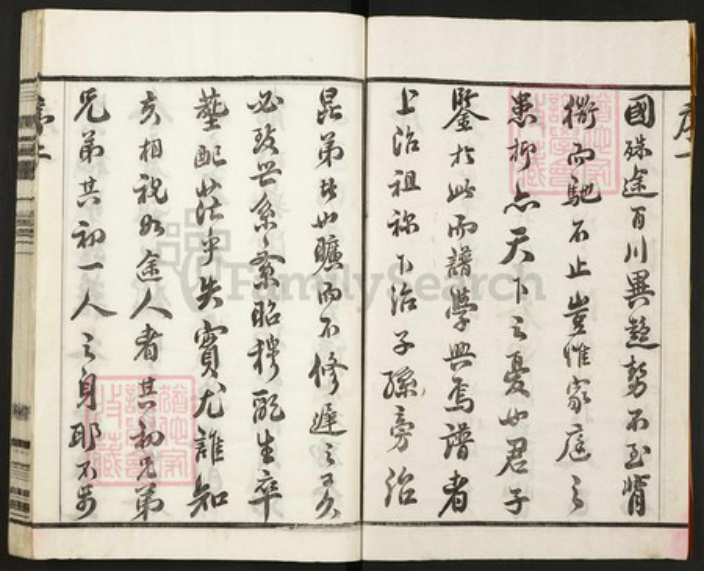 序一
國殊途百川異趨勢不至背
衡而馳不止豈惟家庭之
患抑亦天下之憂也君子
鑒於此而譜學興焉譜者
上治祖祢下治子孫旁治
昆弟者也曠而不修遲之又久
必致世系紊昭穆亂生卒
塟配出法乎失實尤誰知
夫相視如途人者其初兄弟
兄弟其初一人之身耶不
序二
FamilySearch